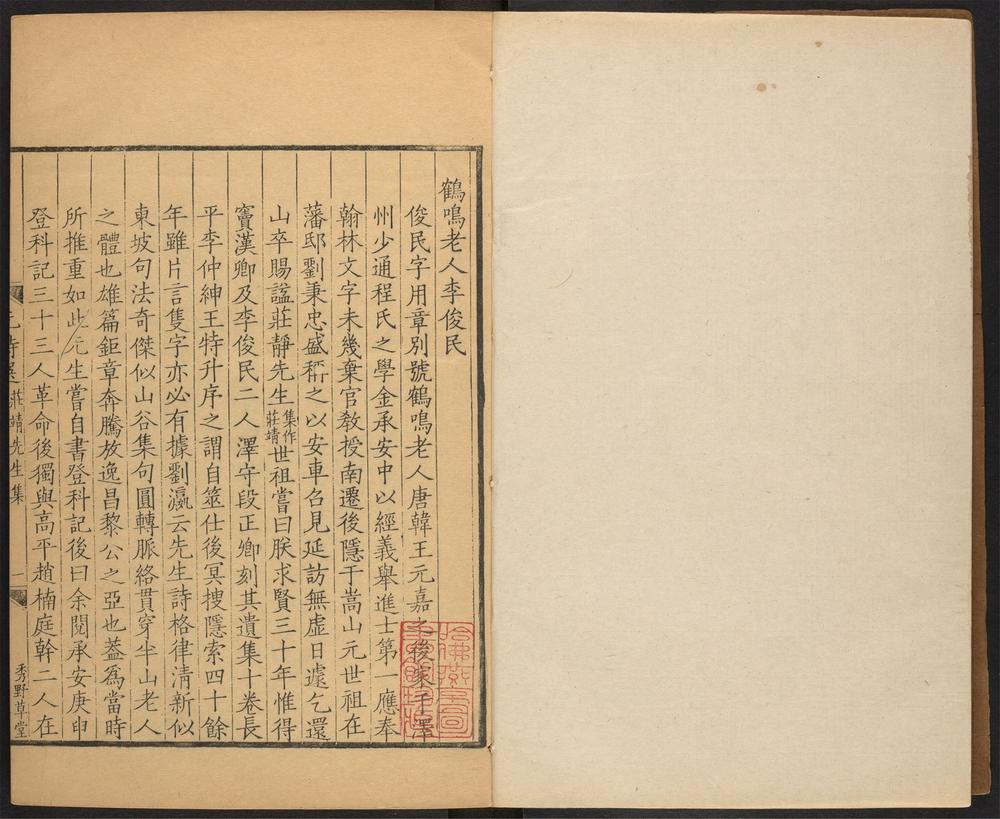 鶴鳴老人李俊民
俊民字用章別號鶴鳴老人唐韓王元嘉之後家于澤
州少通程氏之學金承安中以經義舉進士第一應奉
翰林文字未幾棄官敎授南遷後隱于嵩山元世祖在
藩邸劉秉忠盛稱之以安車召見延訪無虛日遽乞還
山卒賜諡莊靜先生集作莊靖世祖嘗曰朕求賢三十年惟得
竇漢卿及李俊民二人澤守段正卿刻其遺集十卷長
平李仲紳王特升序之謂自筮仕後冥搜隱索四十餘
年雖片言隻字亦必有據劉瀛云先生詩格律清新似
東坡句法奇傑似山谷集句圓轉脈絡貫穿半山老人
之體也雄篇鉅章奔騰放逸昌黎公之亞也蓋爲當時
所推重如此先生嘗自書登科記後曰余閱承安庚申
登科記三十三人革命後獨與高平趙楠庭幹二人在
元詩選 莊靖先生集 一 秀野草堂
哈佛燕京圖